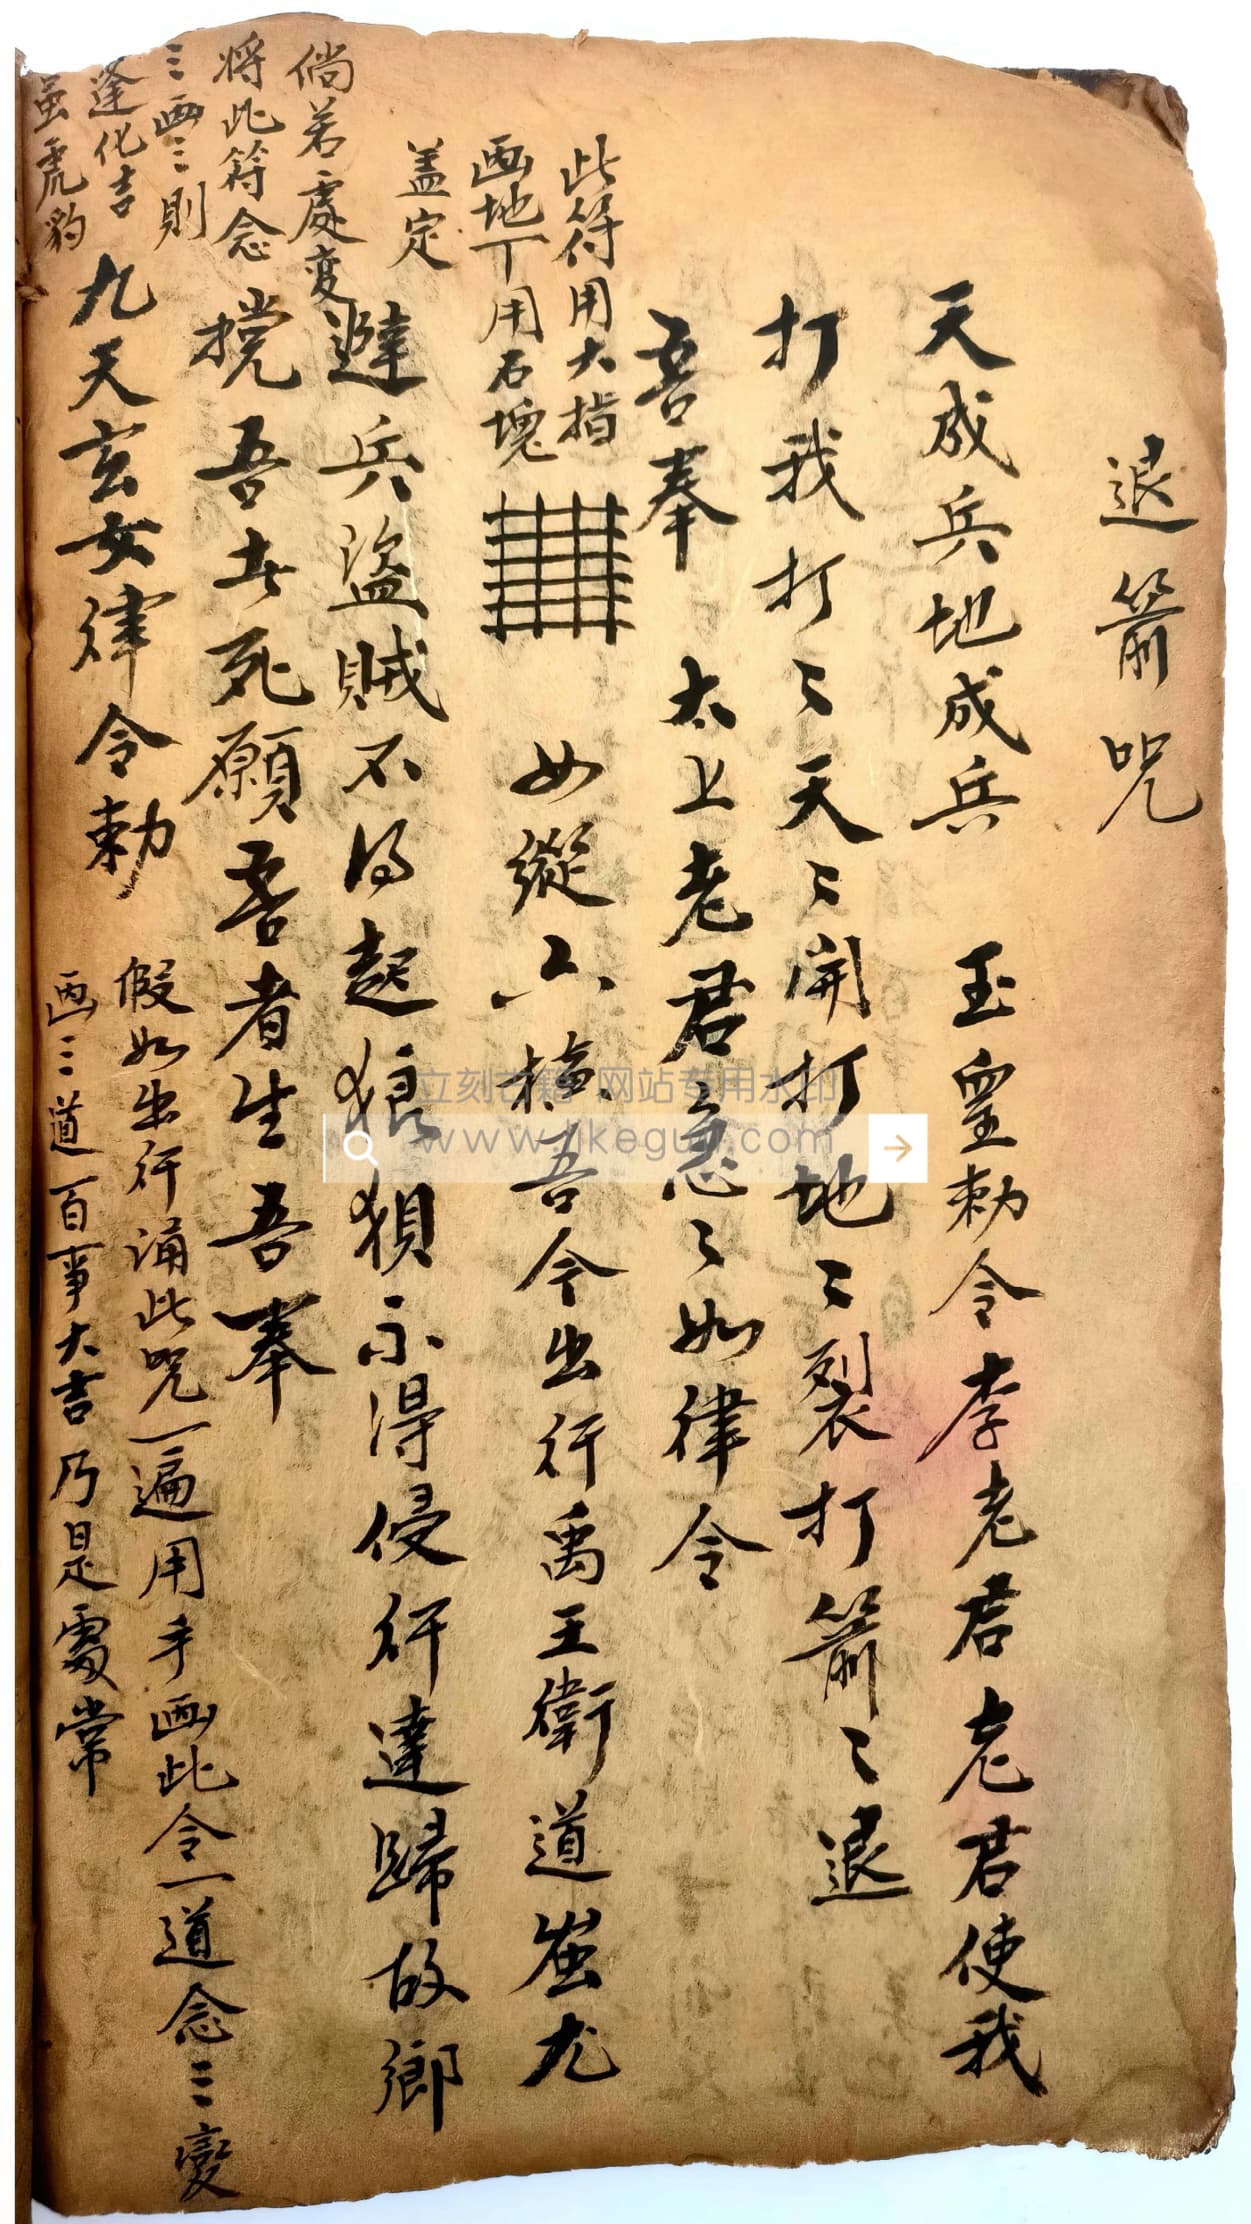 退箭咒
天成兵地成兵 玉皇勅令李老君老君使我
打我打打〻天〻開打地〻裂打箭〻退
吾奉 太上老君急〻如律令
此符用大指
画地下用石塊
盖定
四縱六橫吾今出行禹王衛道蚩尤
避兵盜賊不得起狼狽不得侵行達歸故鄉
倘若處变
将此符念
三画三則
逢化吉
虽虎豹
攩吾者死願吾者生吾奉
九天玄女律令勅
假如出行誦此咒一遍用手画此令一道念三变
画三道百事大吉乃是處常
立刻古籍 网站专用水印